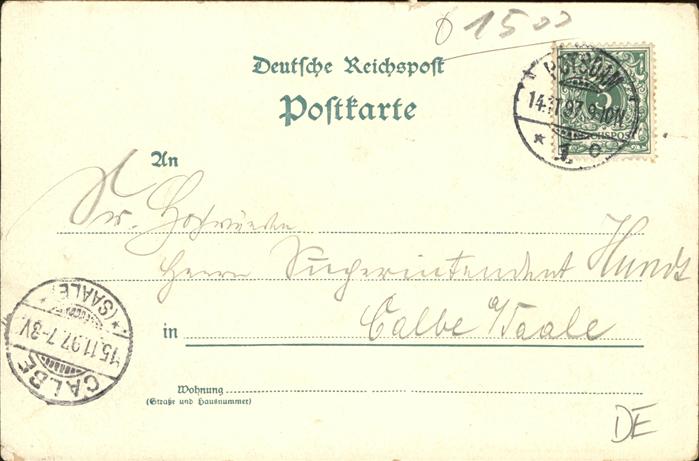 01500
Deutsche Reichspost
Postkarte
POTSDAM
14.11.97. 9-10N.
* 1. c
REICHSPOST
An
Sr. Hochwürden
Herrn Superintendent Hundt
in Calbe a/Saale
CALBE
15.11.97. 7-8V.
* (SAALE) *
Wohnung
(Straße und Hausnummer)
DE